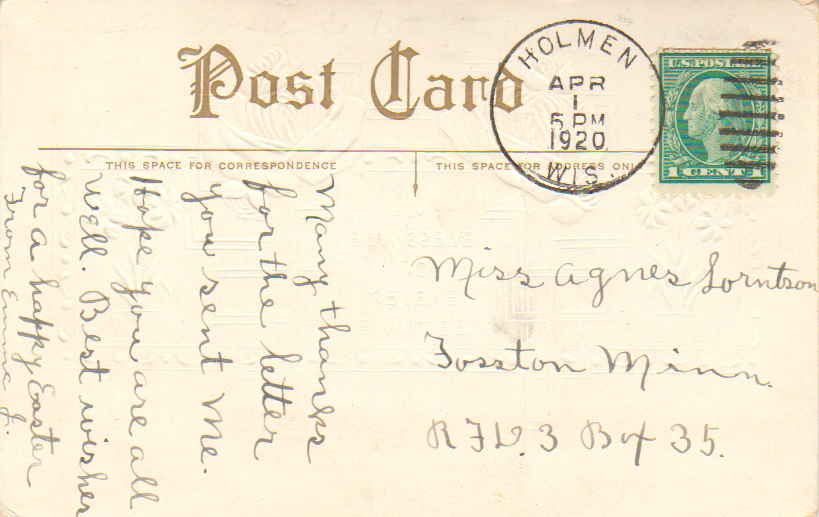 Post Card
HOLMEN
APR
1
5 PM
1920
WIS.
U.S. POSTAGE
1 CENT 1
THIS SPACE FOR CORRESPONDENCE
THIS SPACE FOR ADDRESS ONLY
Many thanks
for the letter
you sent me.
Hope you are all
well. Best wishes
for a happy Easter
From Emma J.
Miss Agnes Lorntson
Fosston Minn.
R F D. 3 Box 35.